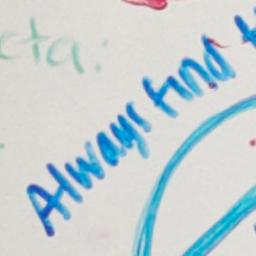 cta:
Always find